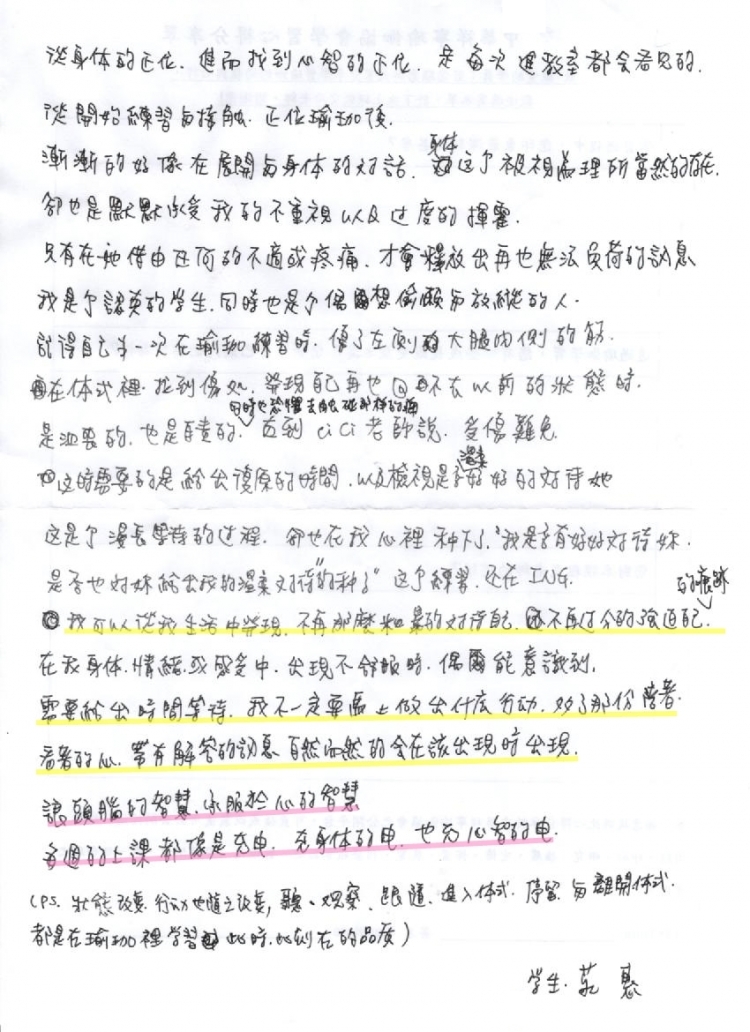 從身体的正位，進而找到心智的正位，是每次進教室都会看見的．
從開始練習与接触．正位瑜珈後．
漸漸的好像在展開与身体的对話．身体这个被視為理所當然的存在
卻也是默默承受我的不重視以及过度的揮霍．
只有在她借由任何的不適或疼痛．才會釋放出再也無法负荷的訊息
我是个認真的学生．同時也是个偶爾想偷懶与放縱的人．
記得自己第一次在瑜珈練習時．傷了左側的大腿内側的筋．
在体式裡．找到傷处．發現自己再也回不在以前的狀態時．
是沮喪的．也是自責的．同時也恐懼去触碰那样的痛 直到CiCi老師說．受傷難免．
这時需要的是給出復原的時間．以及檢視是否溫柔好好的对待她
这是个漫長學待的过程．卻也在我心裡种下了"我是否有好好对待妳．
是否也对妳給出我的溫柔对待"的种子" 这个練習．还在ING．
我可以從我生活中發現．不再那麼粗暴的对待自己．不再过分的強迫自己的痕跡．
在我身体．情緒．或感受中．出現不舒服時．偶爾能意識到．
需要給出時間等待．我不一定要馬上做出什么行动．多了那份陪著．
看著的心．帶有解答的訊息自然而然的会在該出現時出現．
讓頭腦的智慧．承服於心的智慧
每週的上課都像是充电．充身体的电．也充心智的电．
(PS. 狀態改变．行动也隨之改变，聽、观察、跟隨．進入体式．停留．与離開体式．
都是在瑜珈裡学習此時．此刻在的品质)
学生．慧